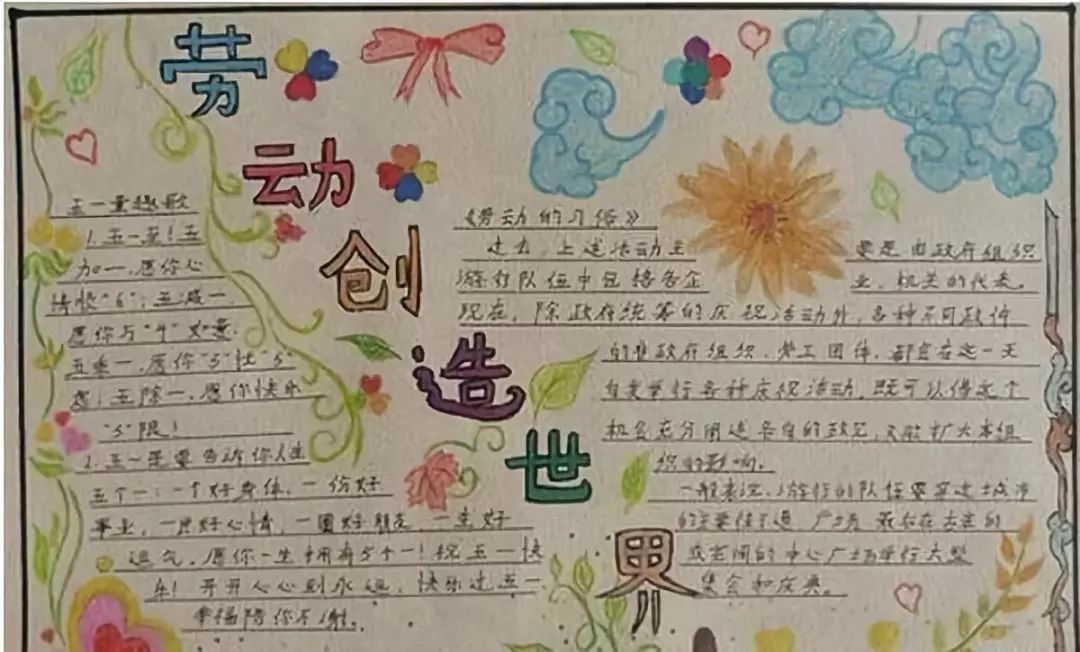 劳动创造世界
五一童趣歌
1.五一至!五
加一,愿你心
情快"6";五减一,
愿你与"4"
五乘一,愿你"5"快"5"
虑;五除一,愿你快乐
"5"限!
2.五一是要告诉你人生
五个一:一个好身体,一份好
事业,一片好心情,一圈好朋友,一生好
运气,愿你一生拥有5个一!祝五一快
乐!开开心心到永远,快乐过五一
幸福陪你不谢。
《劳动的习俗》
过去,上述活动主要是由政府组织
游行队伍中包括各企业、机关的代表。
现在,除政府统筹的庆祝活动外,各种不同政件
的非政府组织、劳工团体,都会在这一天
自发举行各种庆祝活动,既可以借这个
机会充分阐述各自的政见,又能扩大本组
织的影响。
一般来说,游行的队伍要穿过城市
的主要街道、广场,最后在
的中心广场举行大型
集会和庆典。